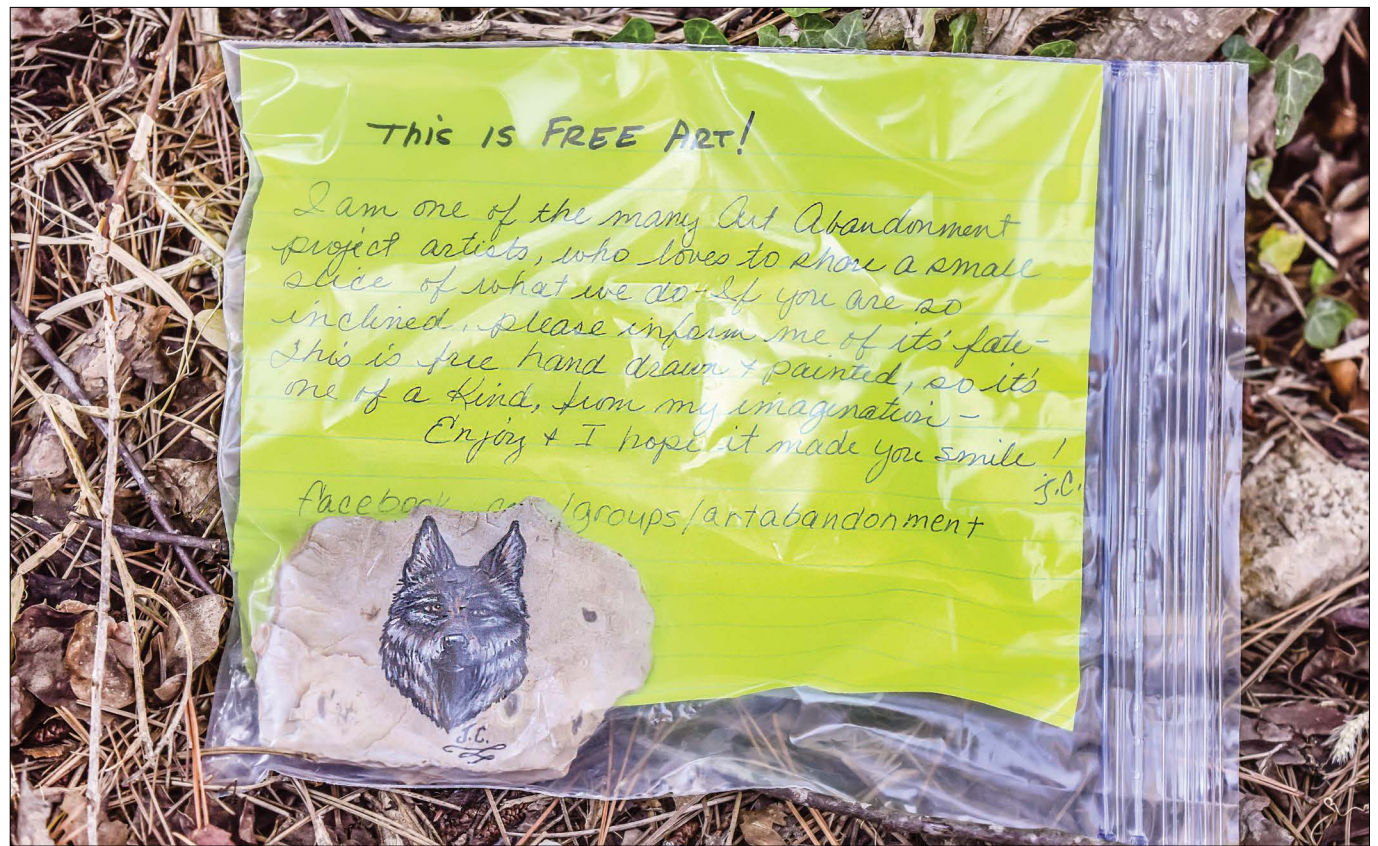 This is FREE ART!
I am one of the many Art Abandonment
project artists, who loves to share a small
slice of what we do. If you are so
inclined, please inform me of it's fate-
This is free hand drawn + painted, so it's
one of a kind, from my imagination-
Enjoy + I hope it made you smile!
j.C.
/groups/artabandonment
J.C.